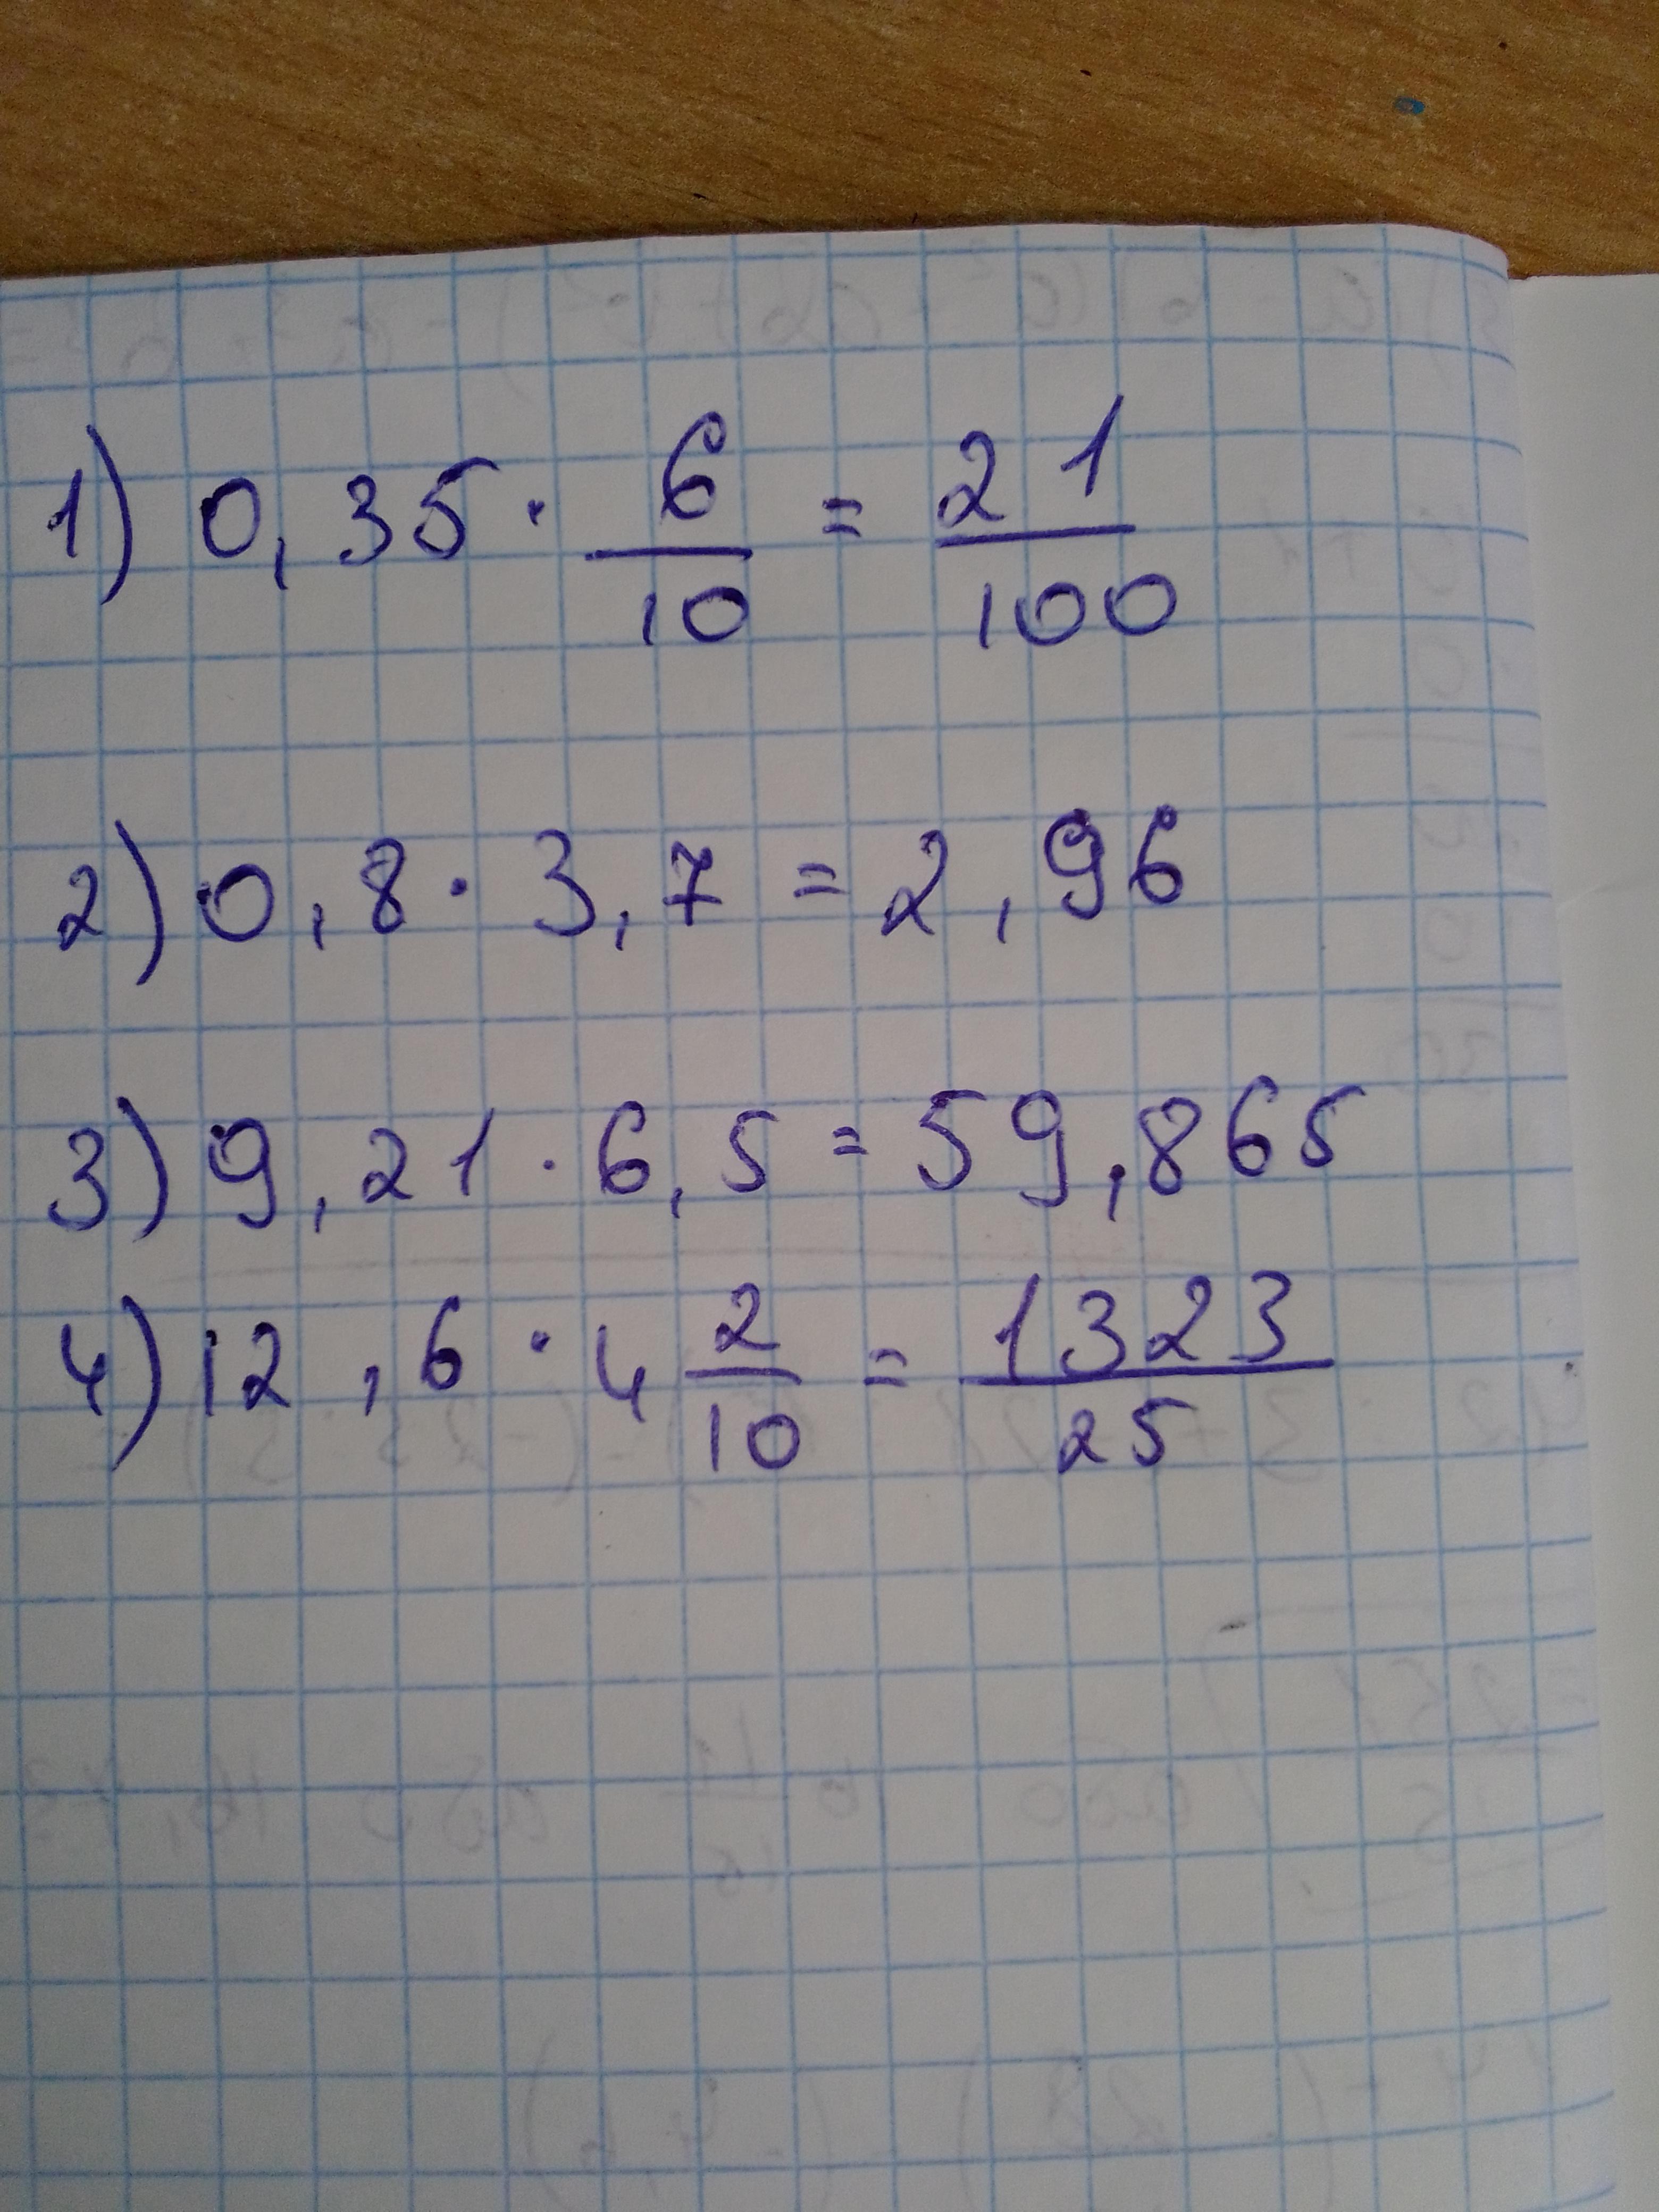 1) 0,35 · 6/10 = 21/100
2) 0,8 · 3,7 = 2,96
3) 9,21 · 6,5 = 59,865
4) 12,6 · 4 2/10 = 1323/25